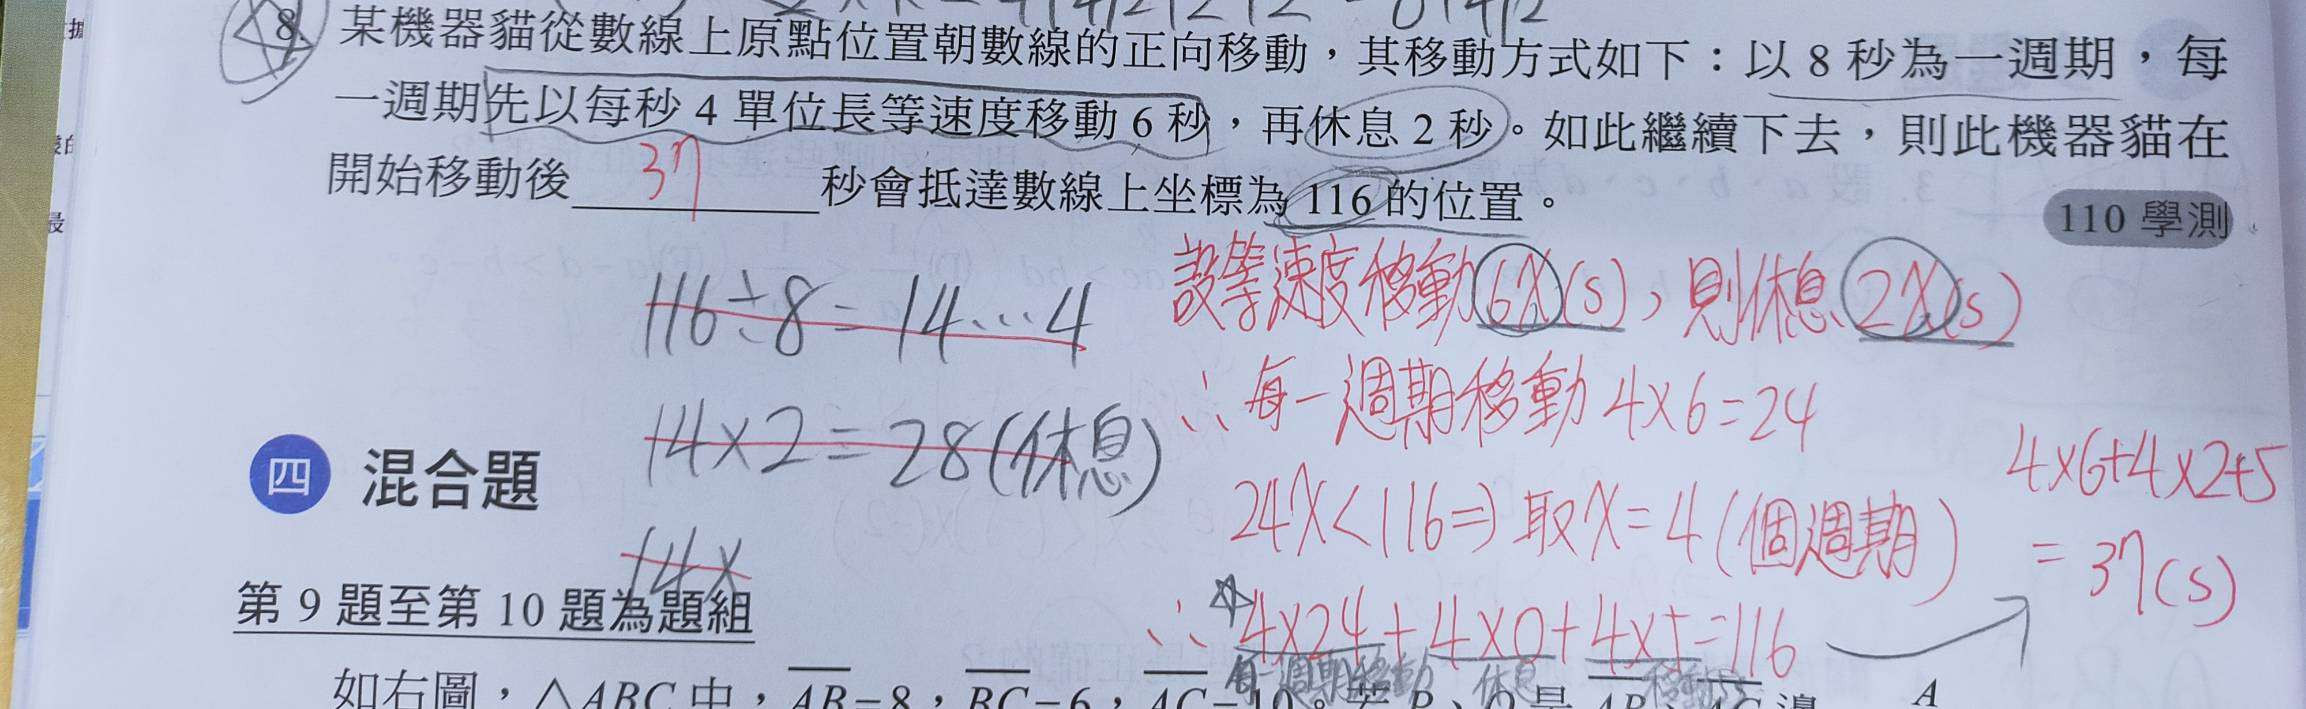 8. 某機器貓從數線上原點位置朝數線的正向移動，其移動方式如下：以 8 秒為一週期，每
一週期先以每秒 4 單位長等速度移動 6 秒，再休息 2 秒。如此繼續下去，則此機器貓在
開始移動後 37 秒會抵達數線上坐標為 116 的位置。
110 學測
116÷8=14…4
14×2=28(休息)
14×
設等速度移動6x(s)，則休息2x(s)
∴每一週期移動 4×6=24
24x<116⇒取x=4(個週期)
∴ 4×24+4×0+4×5=116
每一週期移動 休息 移動
4×6+4×2+5
=37(s)
四 混合題
第 9 題至第 10 題為題組
如右圖，△ABC 中，AB=8，BC=6，AC=10。若 P、Q 是 AB、AC 邊
A